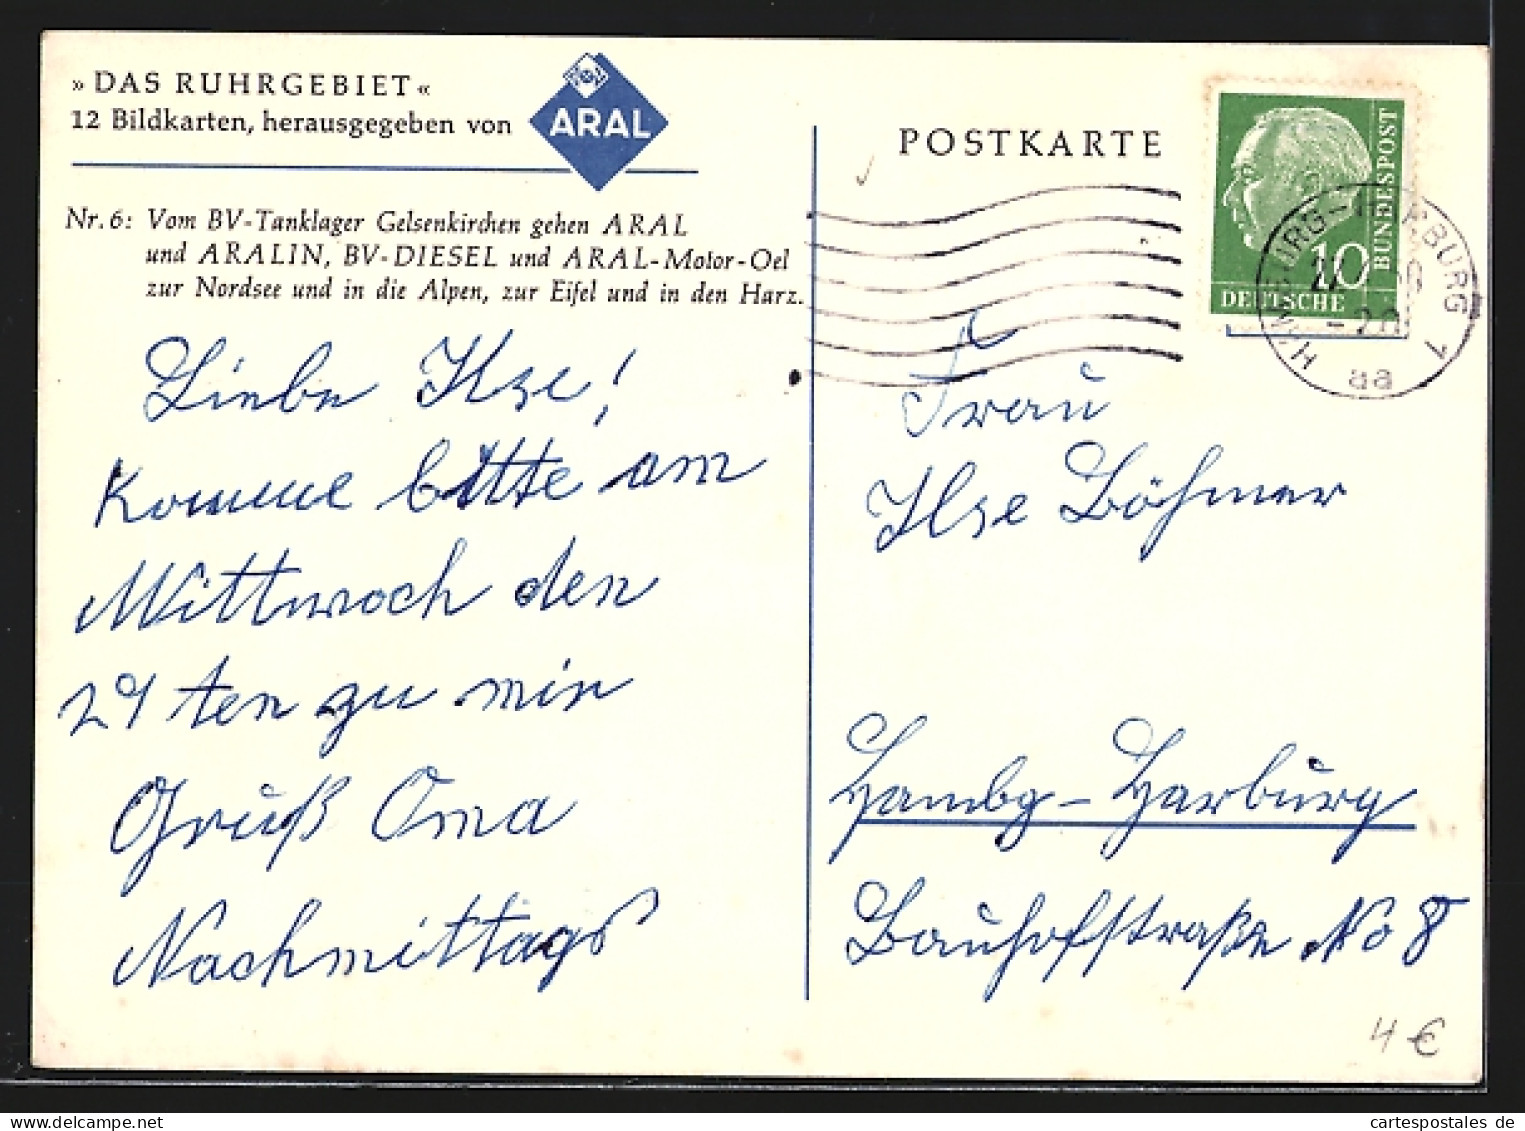 »DAS RUHRGEBIET«
12 Bildkarten, herausgegeben von ARAL
Nr. 6: Vom BV-Tanklager Gelsenkirchen gehen ARAL
und ARALIN, BV-DIESEL und ARAL-Motor-Oel
zur Nordsee und in die Alpen, zur Eifel und in den Harz.
Liebe Ilse!
Komme bitte am
Mittwoch den
29 ten zu mir
Gruß Oma
Nachmittags
POSTKARTE
10
DEUTSCHE
BUNDESPOST
HAMBURG-HARBURG 1
aa
Frau
Ilse Böhmer
Hambg-Harburg
Bauhofstraße No 8
4 €
cartespostales de